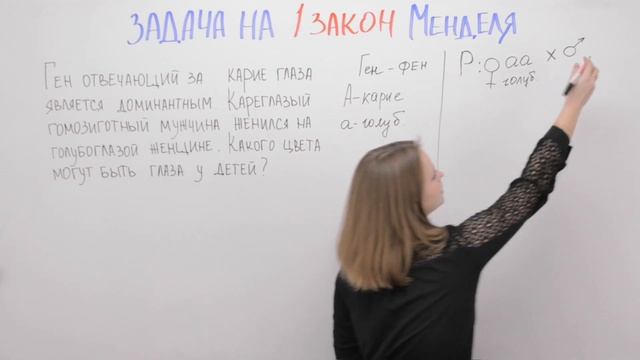 ЗАДАЧА НА 1 ЗАКОН МЕНДЕЛЯ
ГЕН ОТВЕЧАЮЩИЙ ЗА КАРИЕ ГЛАЗА
ЯВЛЯЕТСЯ ДОМИНАНТНЫМ КАРЕГЛАЗЫЙ
ГОМОЗИГОТНЫЙ МУЖЧИНА ЖЕНИЛСЯ НА
ГОЛУБОГЛАЗОЙ ЖЕНЩИНЕ. КАКОГО ЦВЕТА
МОГУТ БЫТЬ ГЛАЗА У ДЕТЕЙ?
ГЕН - ФЕН
А - КАРИЕ
а - ГОЛУБ
Р: ♀ аа × ♂
голуб.